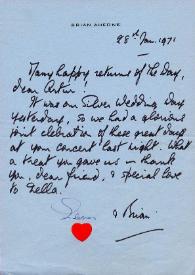 BRIAN AHERNE
28th Jan. 1971
Many happy returns of the Day,
dear Artur!
It was our Silver Wedding Day
yesterday, so we had a glorious
joint celebration of these great days
at your concert last night. What
a treat you gave us — thank
you, dear friend, & special love
to Nella.
& Brian